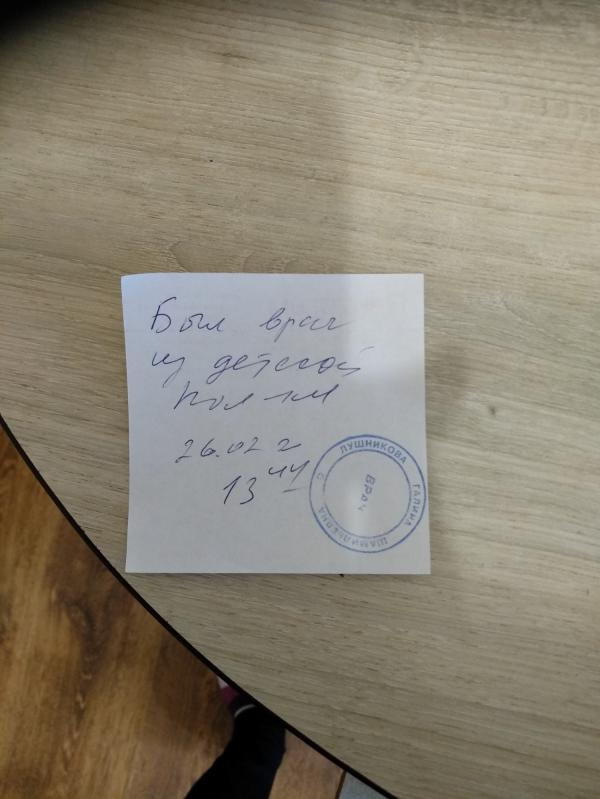 Был врач
из детской
пол-ки
26.02 г
13 44
ЛУШНИКОВА ГАЛИНА ШАМИЛЬЕВНА
ВРАЧ